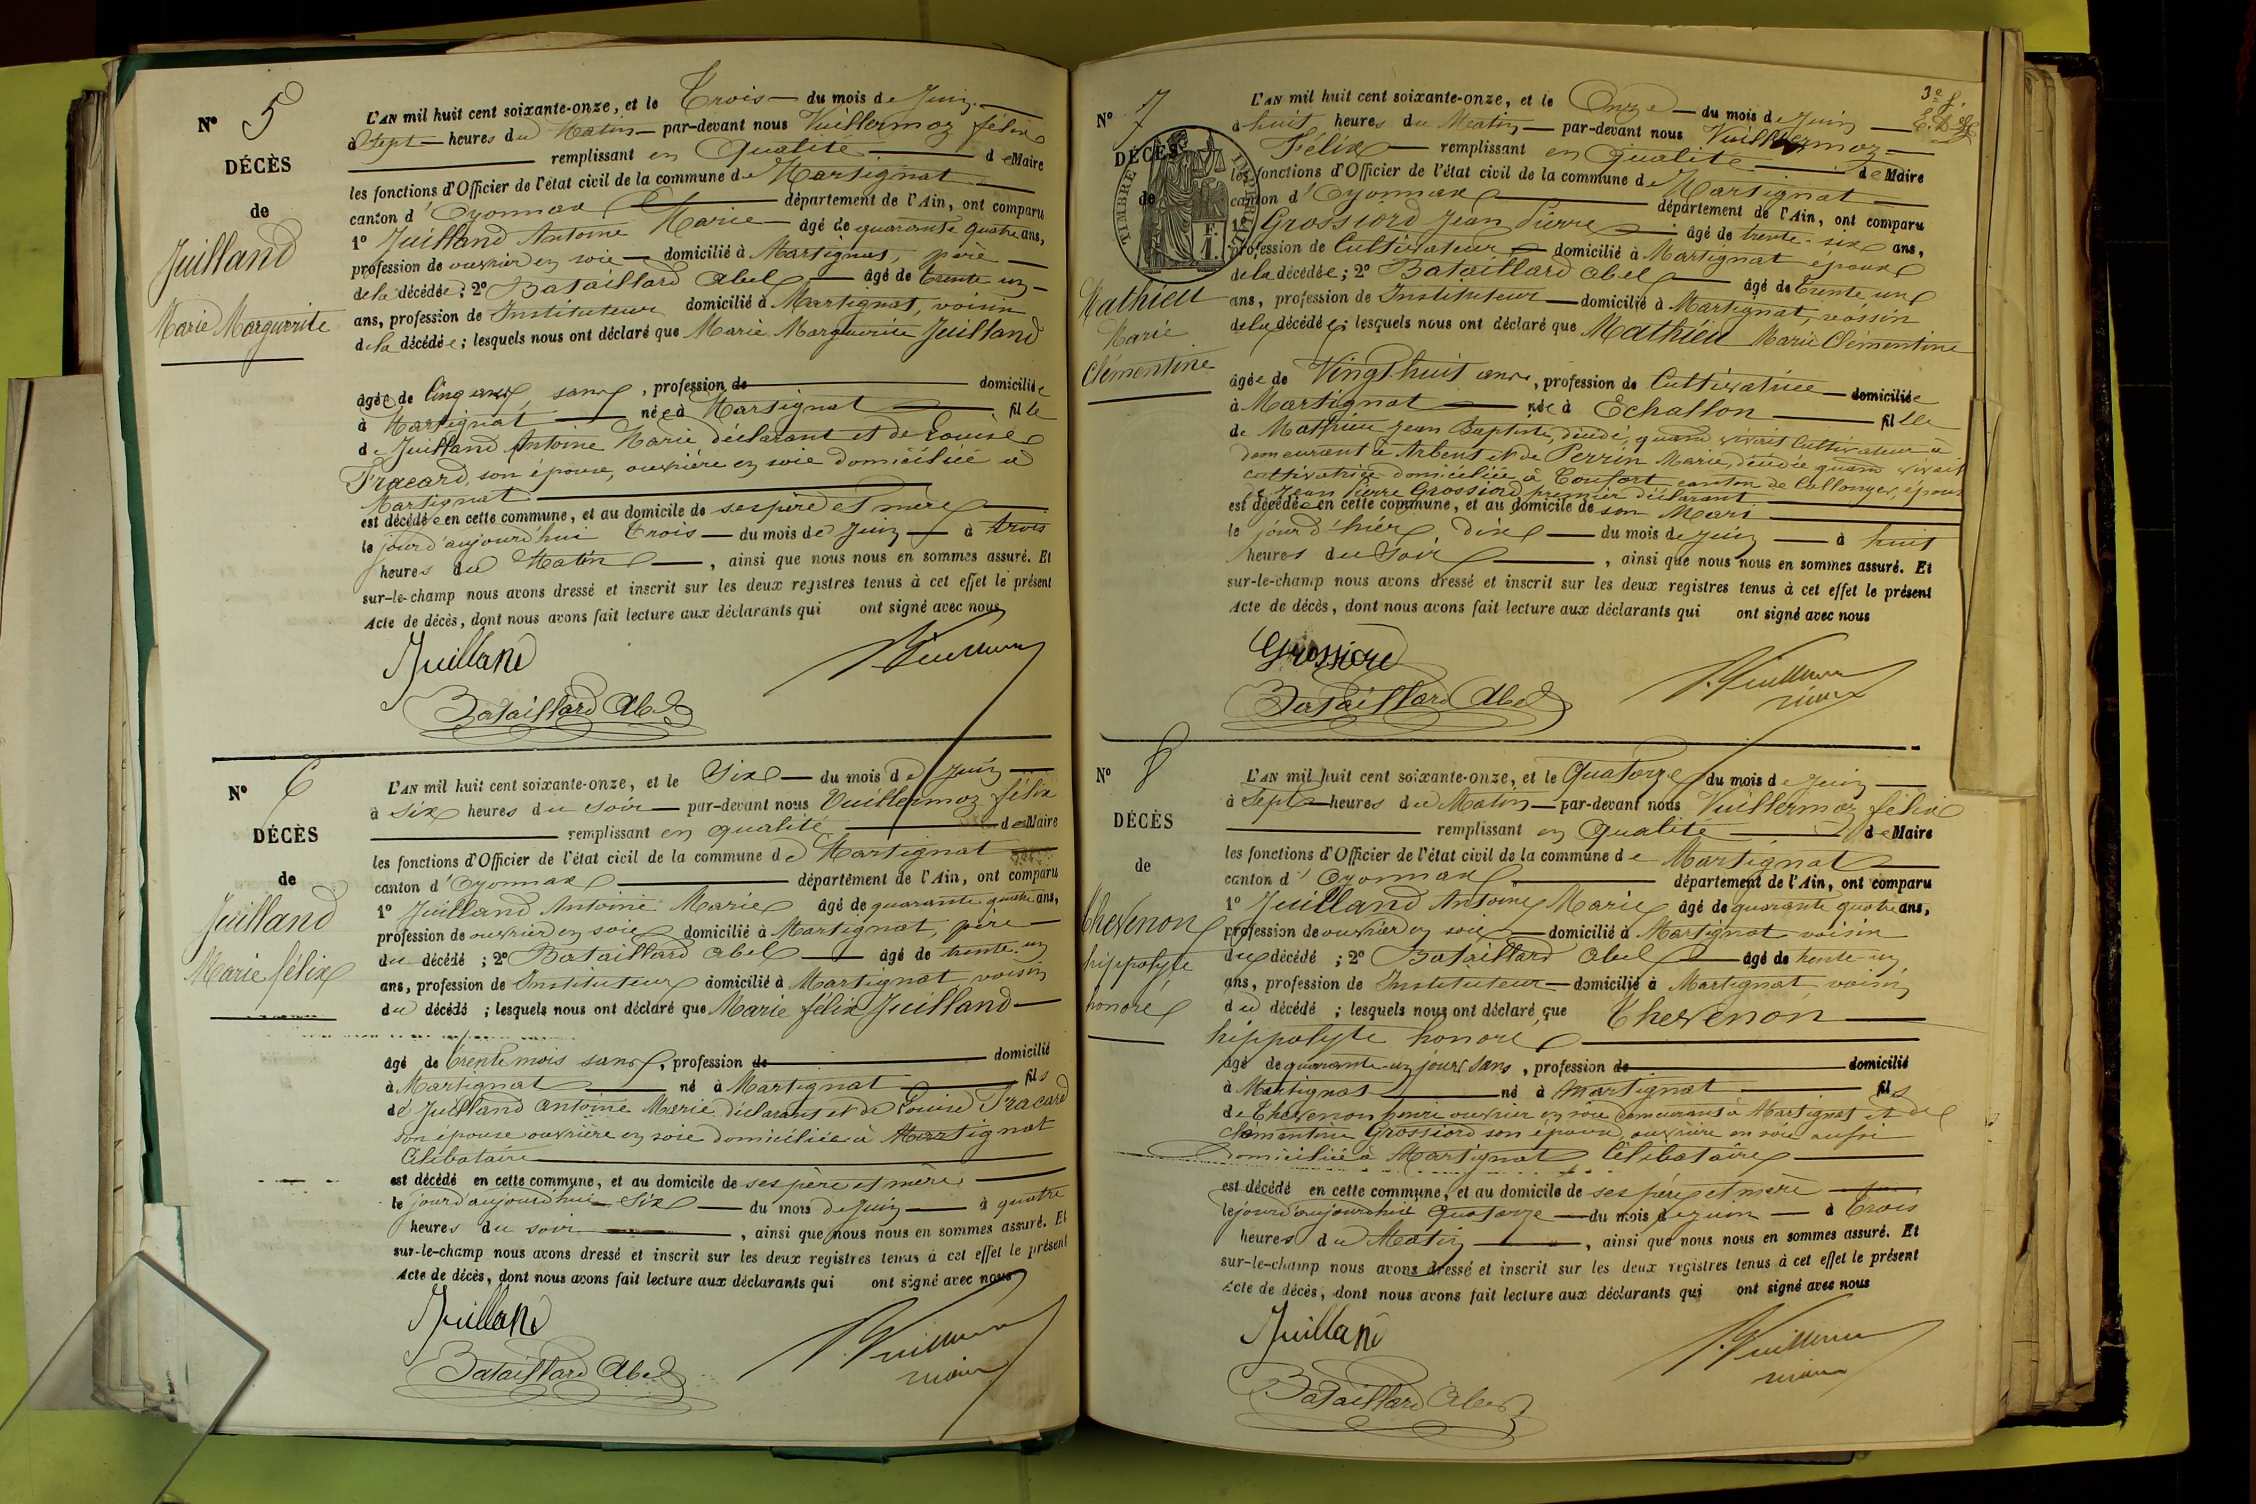 N° 5
DÉCÈS
de
Juilland
Marie Marguerite
L'AN mil huit cent soixante-onze, et le Trois du mois de Juin
à Sept heures du Matin par-devant nous Vuillermoz félix
remplissant en Qualité de Maire
les fonctions d'Officier de l'état civil de la commune de Martignat
canton d'Oyonnax département de l'Ain, ont comparu
1° Juilland Antoine Marie âgé de quarante quatre ans,
profession de ouvrier en soie domicilié à Martignat, père
de la décédée; 2° Bataillard Abel âgé de trente un
ans, profession de Instituteur domicilié à Martignat, voisin
de la décédée; lesquels nous ont déclaré que Marie Marguerite Juilland
âgée de Cinq ans, sans, profession de domiciliée
à Martignat née à Martignat fille
de Juilland Antoine Marie déclarant et de Louise
Tracard, son épouse, ouvrière en soie domiciliée à
Martignat
est décédée en cette commune, et au domicile de ses père et mère
le jour d'aujourd'hui Trois du mois de Juin à trois
heures du Matin, ainsi que nous nous en sommes assuré. Et
sur-le-champ nous avons dressé et inscrit sur les deux registres tenus à cet effet le présent
Acte de décès, dont nous avons fait lecture aux déclarants qui ont signé avec nous
Juilland
Bataillard Abel
N° 6
DÉCÈS
de
Juilland
Marie félix
L'AN mil huit cent soixante-onze, et le Six du mois de Juin
à six heures du soir par-devant nous Vuillermoz félix
remplissant en qualité de Maire
les fonctions d'Officier de l'état civil de la commune de Martignat
canton d'Oyonnax département de l'Ain, ont comparu
1° Juilland Antoine Marie âgé de quarante quatre ans,
profession de ouvrier en soie domicilié à Martignat, père
du décédé; 2° Bataillard Abel âgé de trente un
ans, profession de Instituteur domicilié à Martignat voisin
du décédé; lesquels nous ont déclaré que Marie félix Juilland
âgé de trente mois sans, profession de domicilié
à Martignat né à Martignat fils
de Juilland Antoine Marie déclarant et de Louise Tracard
son épouse ouvrière en soie domiciliée à Martignat
Célibataire
est décédé en cette commune, et au domicile de ses père et mère
le jour d'aujourd'hui Six du mois de juin à quatre
heures du soir, ainsi que nous nous en sommes assuré. Et
sur-le-champ nous avons dressé et inscrit sur les deux registres tenus à cet effet le présent
Acte de décès, dont nous avons fait lecture aux déclarants qui ont signé avec nous
Juilland
Bataillard Abel
maire
3e f.
N° 7
DÉCÈS
de
TIMBRE IMPERIAL
1 F.
Mathieu
Marie
Clémentine
L'AN mil huit cent soixante-onze, et le Onze du mois de Juin
à huit heures du Matin par-devant nous Vuillermoz
Félix remplissant en qualité de Maire
les fonctions d'Officier de l'état civil de la commune de Martignat
canton d'Oyonnax département de l'Ain, ont comparu
1° Grossiord Jean Pierre âgé de trente-six ans,
profession de Cultivateur domicilié à Martignat époux
de la décédée; 2° Bataillard Abel âgé de trente un
ans, profession de Instituteur domicilié à Martignat, voisin
de la décédée; lesquels nous ont déclaré que Mathieu Marie Clémentine
âgée de Vingt huit ans, profession de Cultivatrice domiciliée
à Martignat née à Echallon fille
de Mathieu Jean Baptiste, décédé, quand vivait Cultivateur à
demeurant à Arbent et de Perrin Marie, décédée quand vivait
cultivatrice domiciliée à Confort canton de Collonges, épouse
de Jean Pierre Grossiord premier déclarant
est décédée en cette commune, et au domicile de son Mari
le jour d'hier dix du mois de Juin à huit
heures du Soir, ainsi que nous nous en sommes assuré. Et
sur-le-champ nous avons dressé et inscrit sur les deux registres tenus à cet effet le présent
Acte de décès, dont nous avons fait lecture aux déclarants qui ont signé avec nous
Grossiord
Bataillard Abel
maire
N° 8
DÉCÈS
de
Thevenon
hippolyte
honoré
L'AN mil huit cent soixante-onze, et le Quatorze du mois de Juin
à Sept heures du Matin par-devant nous Vuillermoz félix
remplissant en Qualité de Maire
les fonctions d'Officier de l'état civil de la commune de Martignat
canton d'Oyonnax département de l'Ain, ont comparu
1° Juilland Antoine Marie âgé de quarante quatre ans,
profession de ouvrier en soie domicilié à Martignat voisin
du décédé; 2° Bataillard Abel âgé de trente-un
ans, profession de Instituteur domicilié à Martignat voisin
du décédé; lesquels nous ont déclaré que Thevenon
hippolyte honoré
âgé de quarante-un jours sans, profession de domicilié
à Martignat né à Martignat fils
de Thevenon henri ouvrier en soie demeurant à Martignat et de
Clémentine Grossiord son épouse, ouvrière en soie aussi
domiciliée à Martignat Célibataire
est décédé en cette commune, et au domicile de ses père et mère
le jour d'aujourd'hui Quatorze du mois de juin à Trois
heures du Matin, ainsi que nous nous en sommes assuré. Et
sur-le-champ nous avons dressé et inscrit sur les deux registres tenus à cet effet le présent
Acte de décès, dont nous avons fait lecture aux déclarants qui ont signé avec nous
Juilland
Bataillard Abel
maire